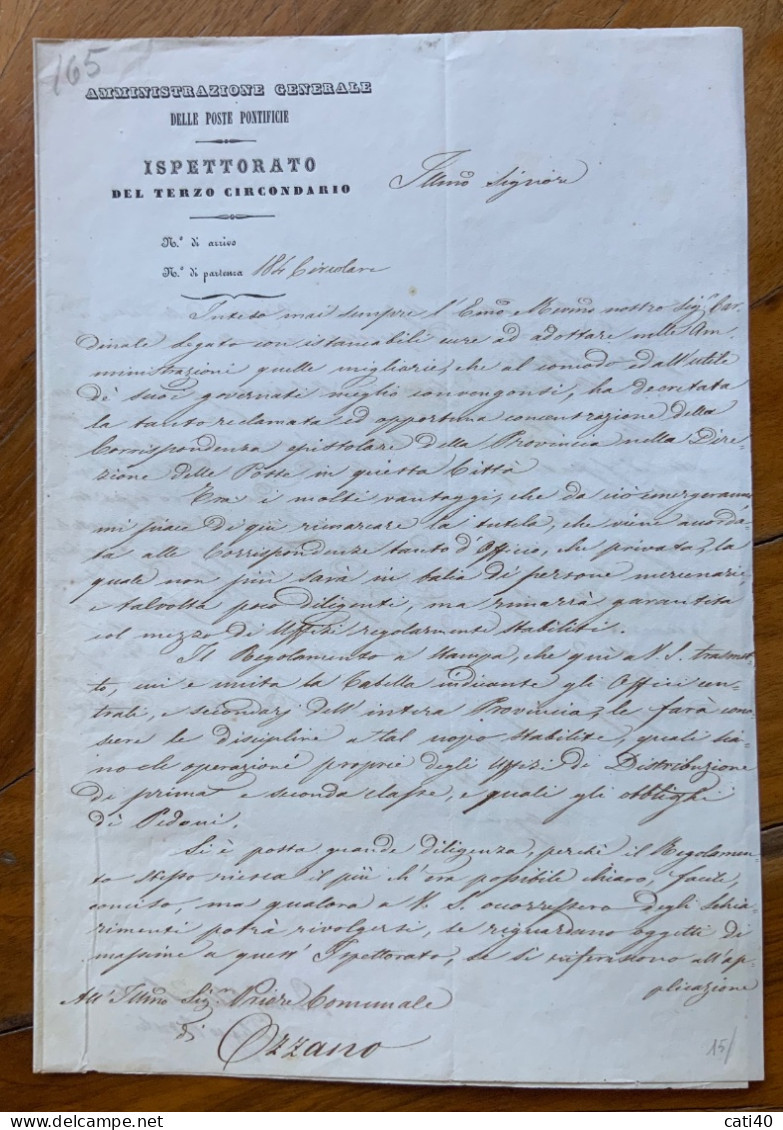 165
AMMINISTRAZIONE GENERALE
DELLE POSTE PONTIFICIE
ISPETTORATO
DEL TERZO CIRCONDARIO
Illmo Signore
N.º di arrivo
N.º di partenza 184 Circolare
Inteso mai sempre l'Emo nostro Sigr Car
dinale Legato con istancabili cure ad adottare nelle Am
ministrazioni quelle migliorie, che al comodo ed all'utile
di suoi governati meglio convengonsi, ha decretata
la tanto reclamata ed opportuna concentrazione della
Corrispondenza epistolare della Provincia nella Dire-
zione delle Poste in questa Città
Tra i molti vantaggi, che da ciò emergeranno
mi piace di qui rimarcare la tutela, che viene accorda-
ta alle Corrispondenze tanto d'Officio, che privata, la
quale non più sarà in balia di persone mercenarie
e talvolta poco diligenti, ma rimarrà garantita
col mezzo di Uffizi regolarmente stabiliti.
Il Regolamento a stampa, che qui a V. S. trasmet-
to, cui è unita la Tabella indicante gli Offici cen-
trali, e secondarj dell'intera Provincia, le farà cono
scere le discipline a tal uopo stabilite, quali sia-
no le operazioni proprie degli Uffizi di Distribuzione
di prima e seconda classe, e quali gli obblighi
di Pedoni.
Si è posta grande diligenza, perchè il Regolamen-
to stesso riesca il più ch'era possibile chiaro, facile,
conciso, ma qualora a V. S. occorressero degli schia-
rimenti potrà rivolgersi, se riguardano oggetti di
massime a quest'Ispettorato, se si riferissono all'ap-
plicazione
All'Illmo Sigr Priore Comunale
di
Ozzano
15/
cati40